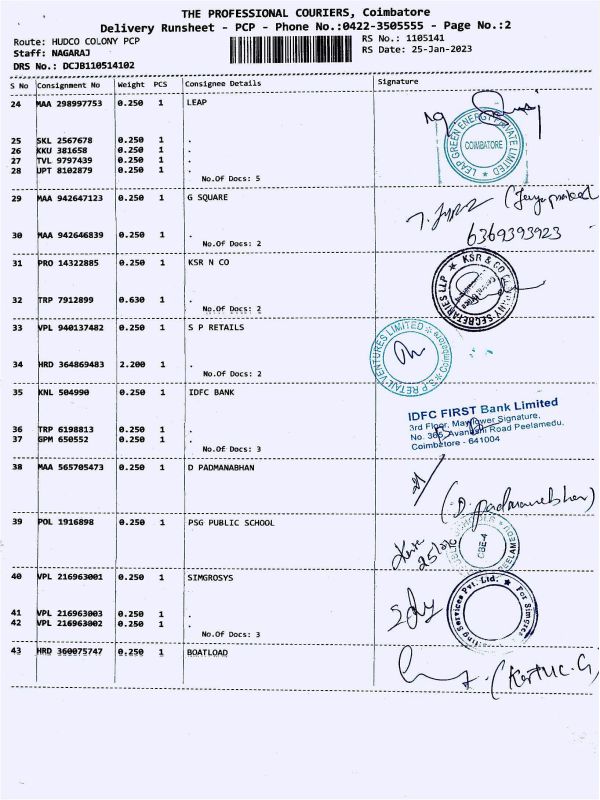 THE PROFESSIONAL COURIERS, Coimbatore
Delivery Runsheet - PCP - Phone No.:0422-3505555 - Page No.:2
Route: HUDCO COLONY PCP
RS No.: 1105141
Staff: NAGARAJ
RS Date: 25-Jan-2023
DRS No.: DCJB110514102
S No Consignment No Weight PCS Consignee Details Signature
24 MAA 298997753 0.250 1 LEAP
LEAP GREEN ENERGY PRIVATE LIMITED
COIMBATORE
25 SKL 2567678 0.250 1 .
26 KKU 381658 0.250 1 .
27 TVL 9797439 0.250 1 .
28 UPT 8102879 0.250 1 .
No.Of Docs: 5
29 MAA 942647123 0.250 1 G SQUARE
30 MAA 942646839 0.250 1 .
6369393923
No.Of Docs: 2
31 PRO 14322885 0.250 1 KSR N CO
KSR & CO COMPANY SECRETARIES LLP
32 TRP 7912899 0.630 1 .
No.Of Docs: 2
33 VPL 940137482 0.250 1 S P RETAILS
S.P RETAIL VENTURES LIMITED
Coimbatore
34 HRD 364869483 2.200 1 .
No.Of Docs: 2
35 KNL 504990 0.250 1 IDFC BANK
IDFC FIRST Bank Limited
3rd Floor, Mayflower Signature,
No. 365, Avanashi Road Peelamedu,
Coimbatore - 641004
36 TRP 6198813 0.250 1 .
37 GPM 650552 0.250 1 .
No.Of Docs: 3
38 MAA 565705473 0.250 1 D PADMANABHAN
(D. Padmanabhan)
39 POL 1916898 0.250 1 PSG PUBLIC SCHOOL
CBE-4
40 VPL 216963001 0.250 1 SIMGROSYS
Services Pvt. Ltd.
41 VPL 216963003 0.250 1 .
42 VPL 216963002 0.250 1 .
No.Of Docs: 3
43 HRD 360075747 0.250 1 BOATLOAD